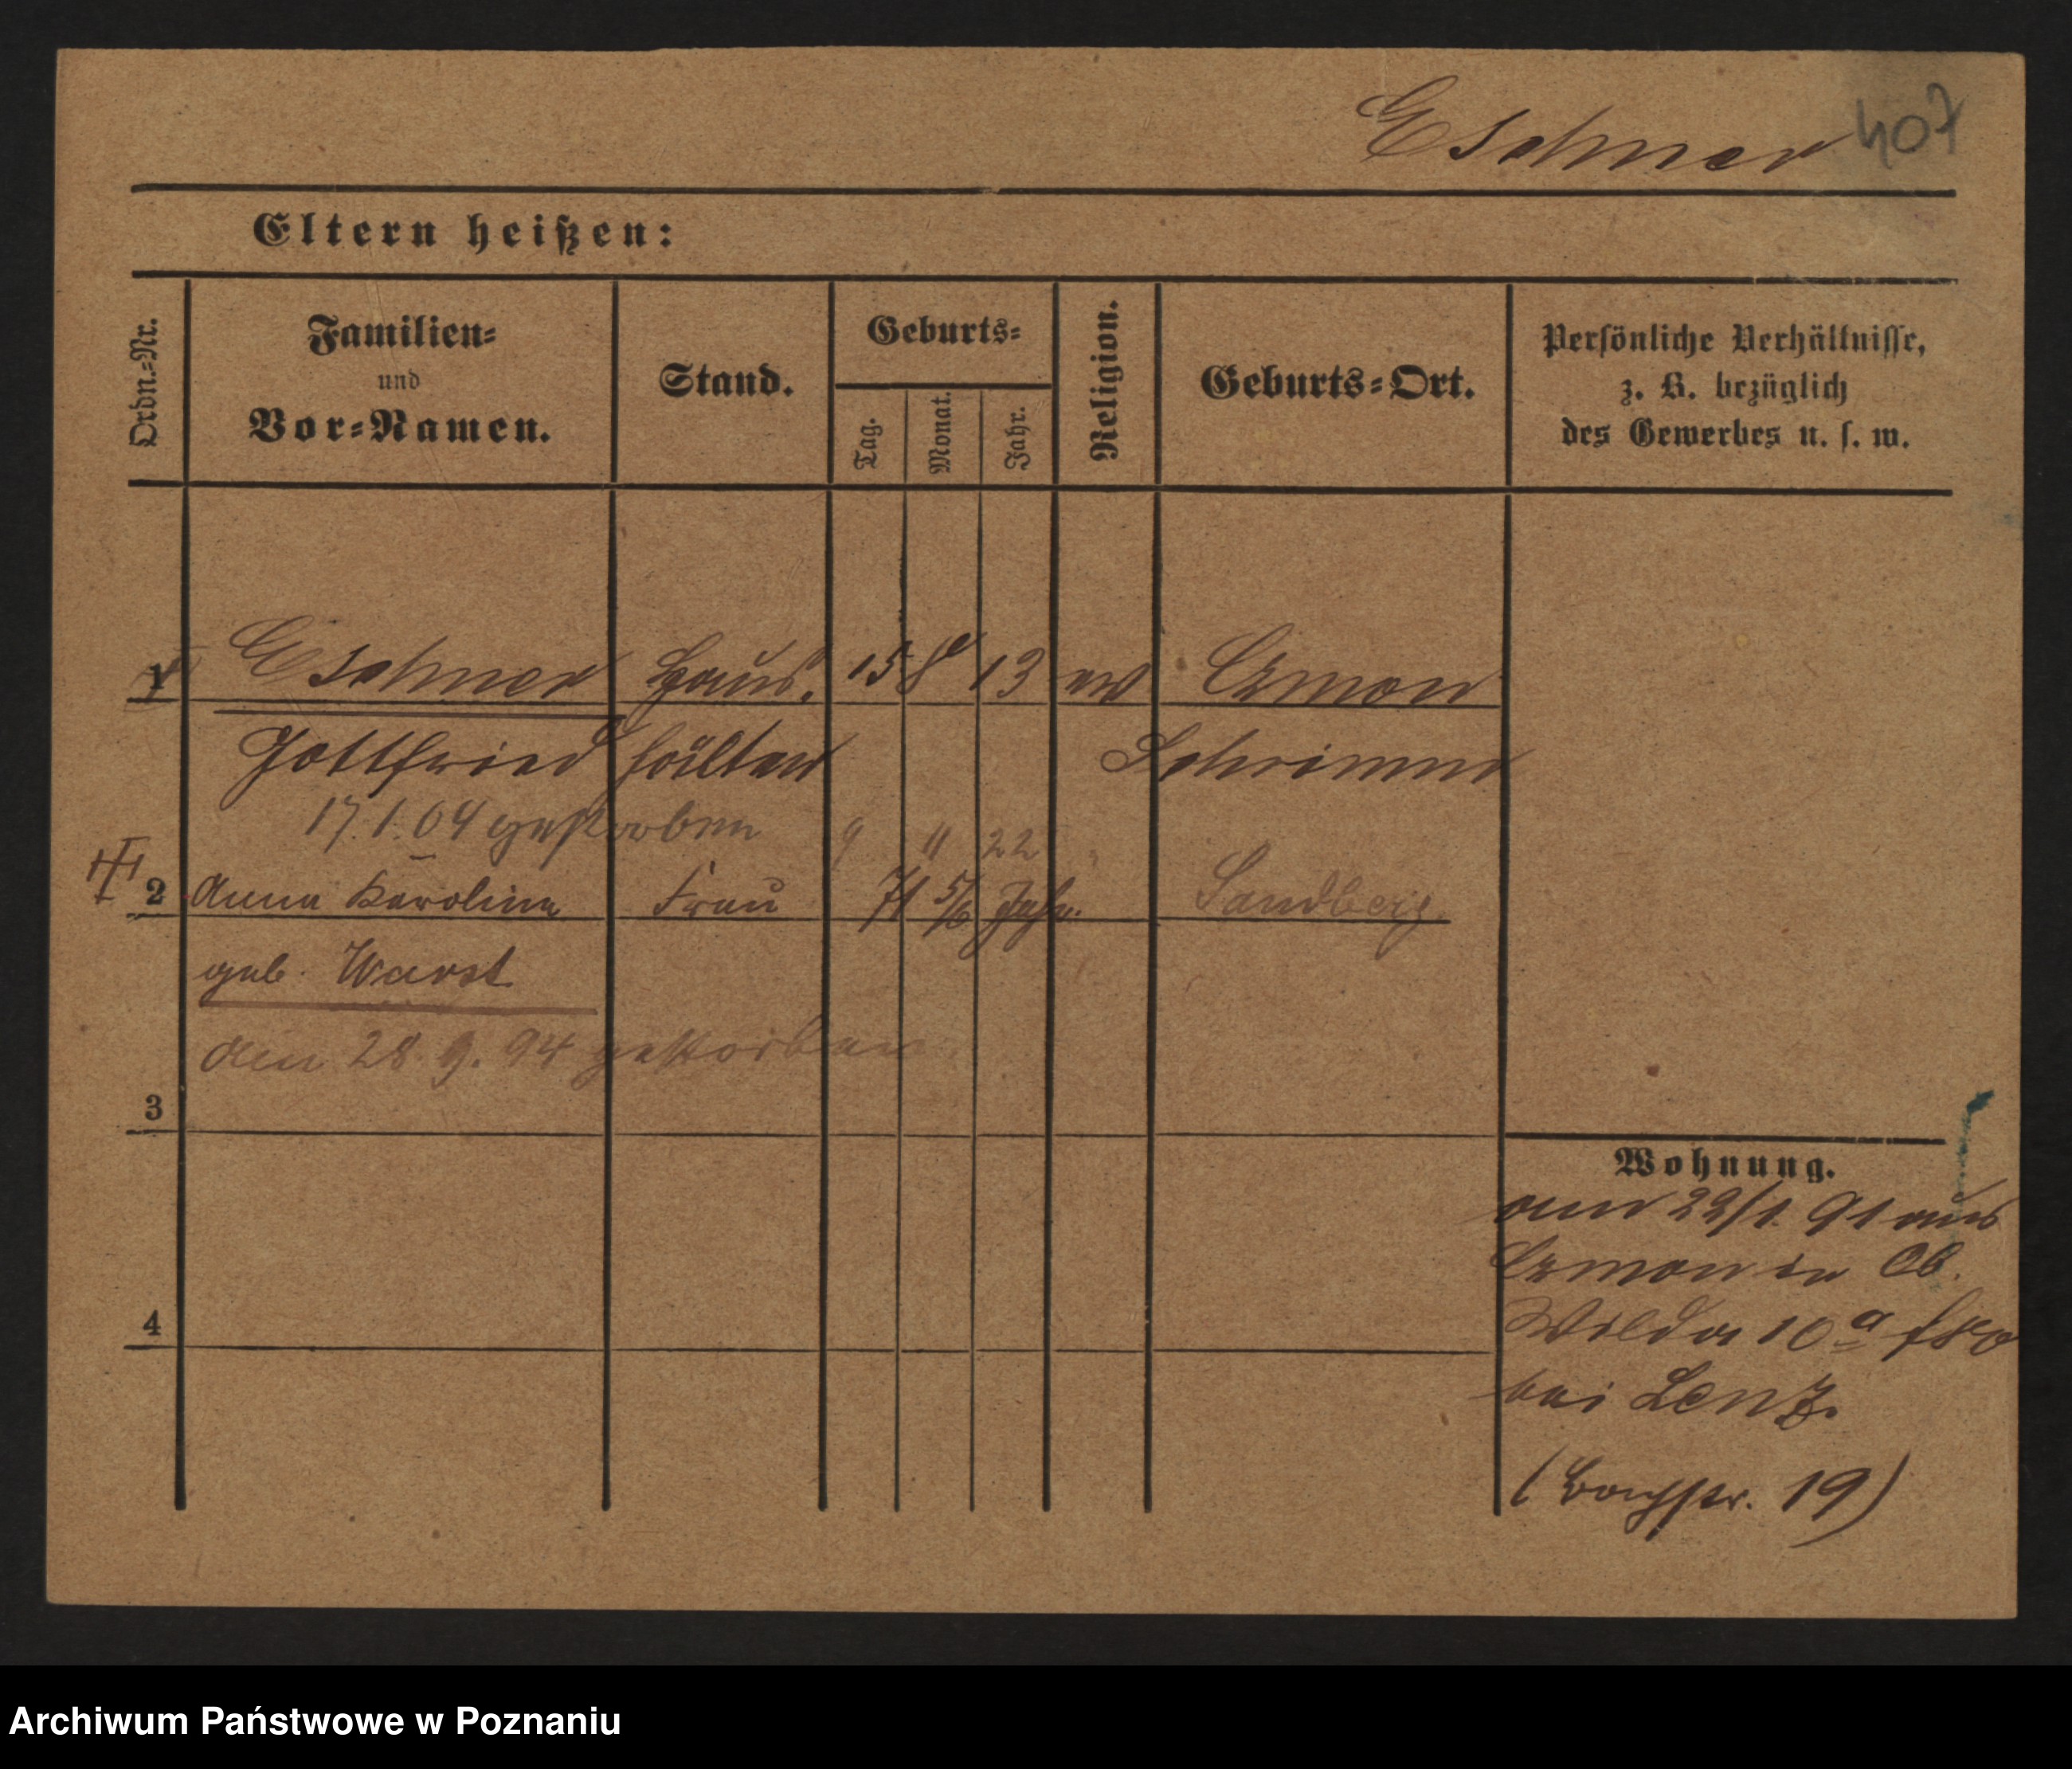 Eschner 407
Eltern heißen:
Ordn.=Nr.
Familien=
und
Vor=Namen.
Stand.
Geburts=
Tag.
Monat.
Jahr.
Religion.
Geburts=Ort.
Persönliche Verhältnisse,
z. B. bezüglich
des Gewerbes u. s. w.
1 Eschner Haus. 15 8 13 ev Czmon
Gottfried hälter Schrimm
17.1.04 gestorben 9 11 22
2 Anna Karolina Frau 71 5/6 Jahr. Sandberg
geb. Wurst
den 28.9.94 gestorben
3
4
Wohnung.
am 22/1. 91 aus
Czmon in Ob.
Wilda 10a
bei Lenz.
(Bachstr. 19)
Archiwum Państwowe w Poznaniu